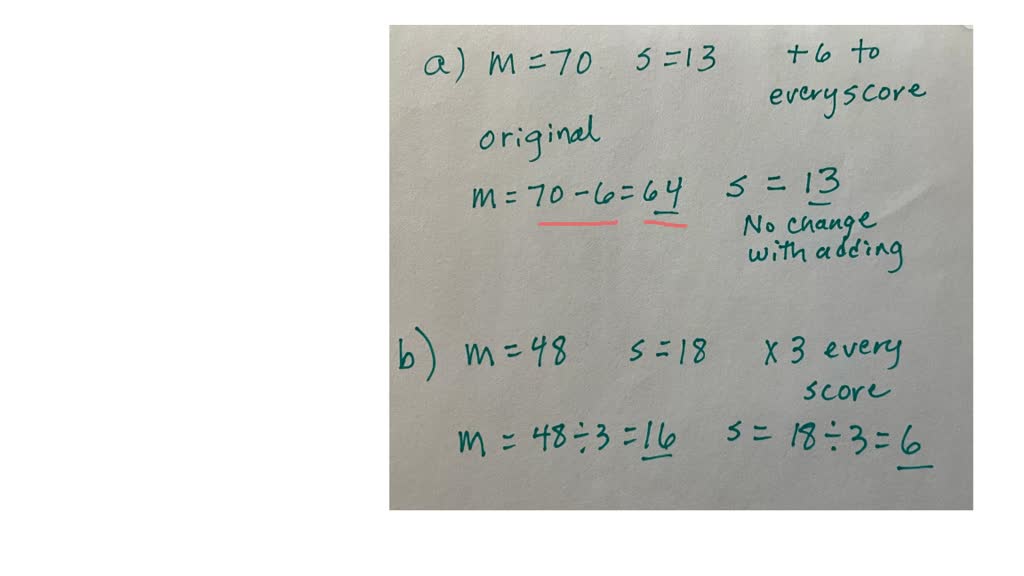 a) m = 70 s = 13 + 6 to
every score
original
m = 70 - 6 = 64 s = 13
No change
with adding
b) m = 48 s = 18 x 3 every
score
m = 48 ÷ 3 = 16 s = 18 ÷ 3 = 6